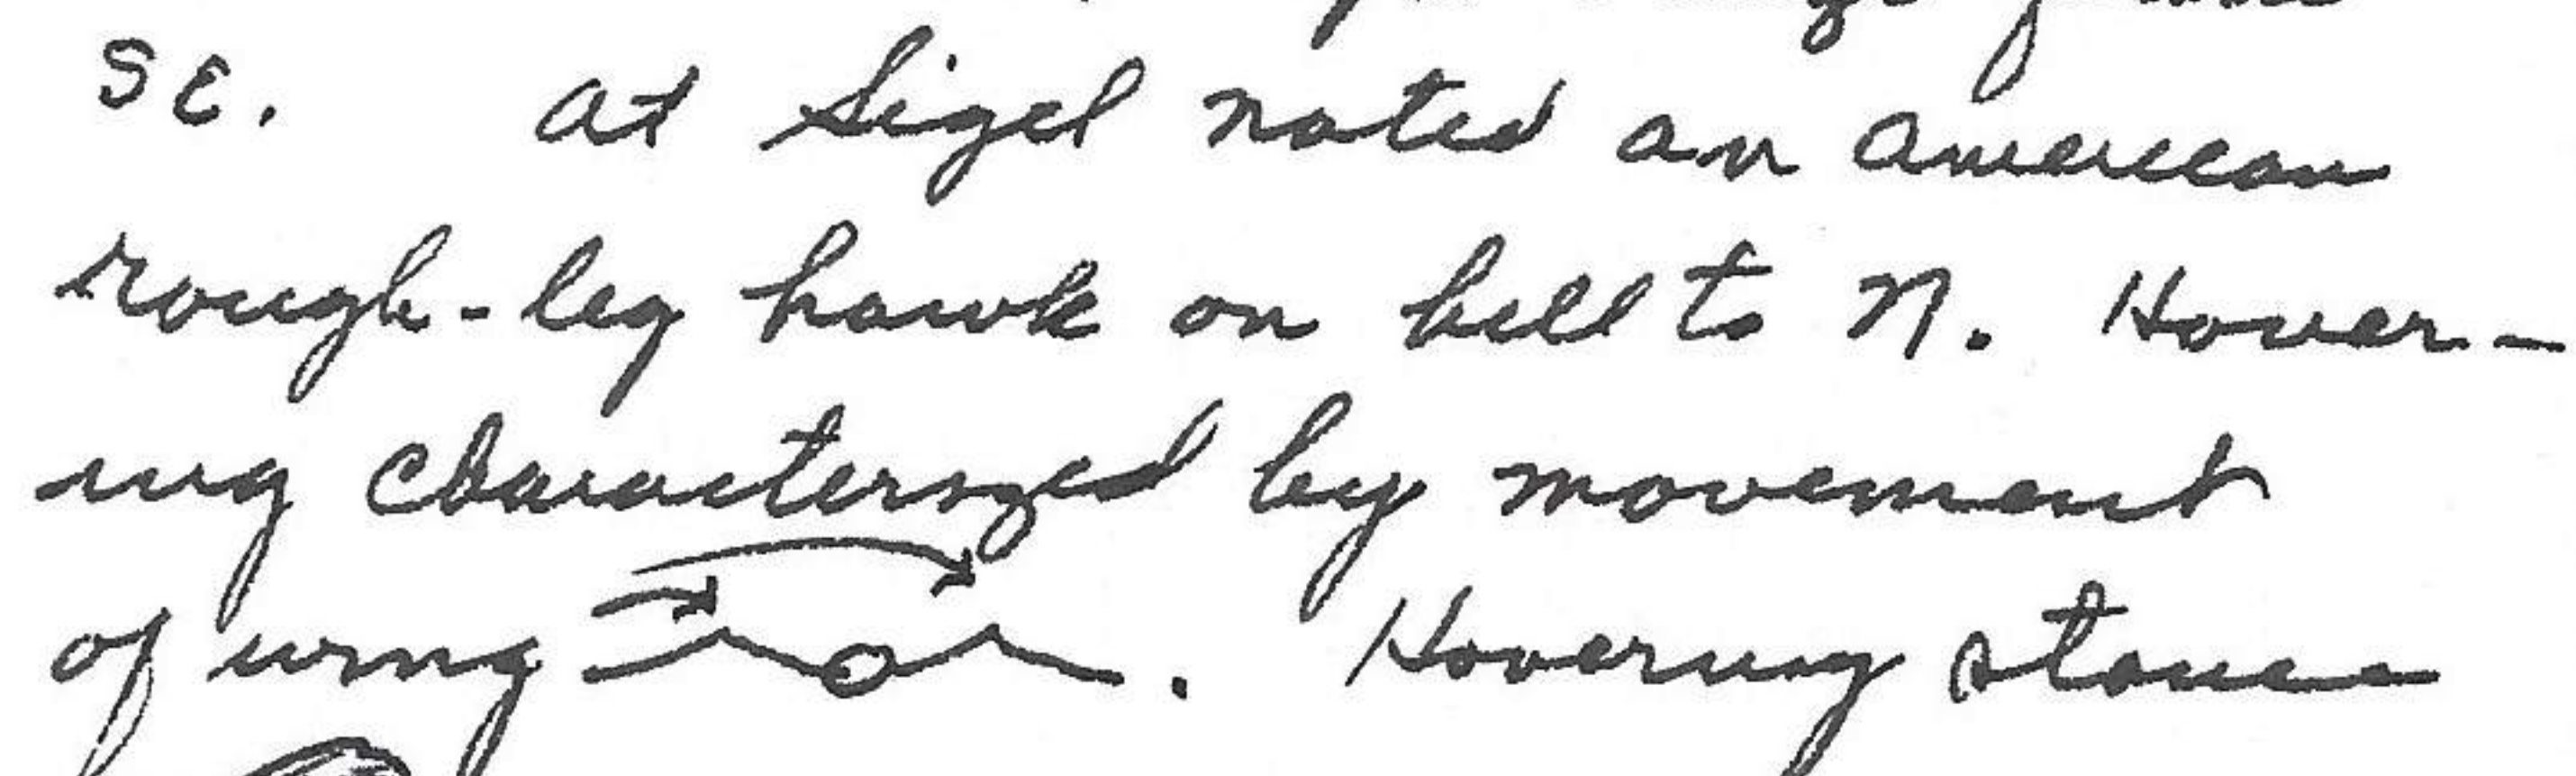 SE. At Sigel noted an American
rough-leg hawk on hill to N. Hover-
ing characterized by movement
of wing . Hovering stance